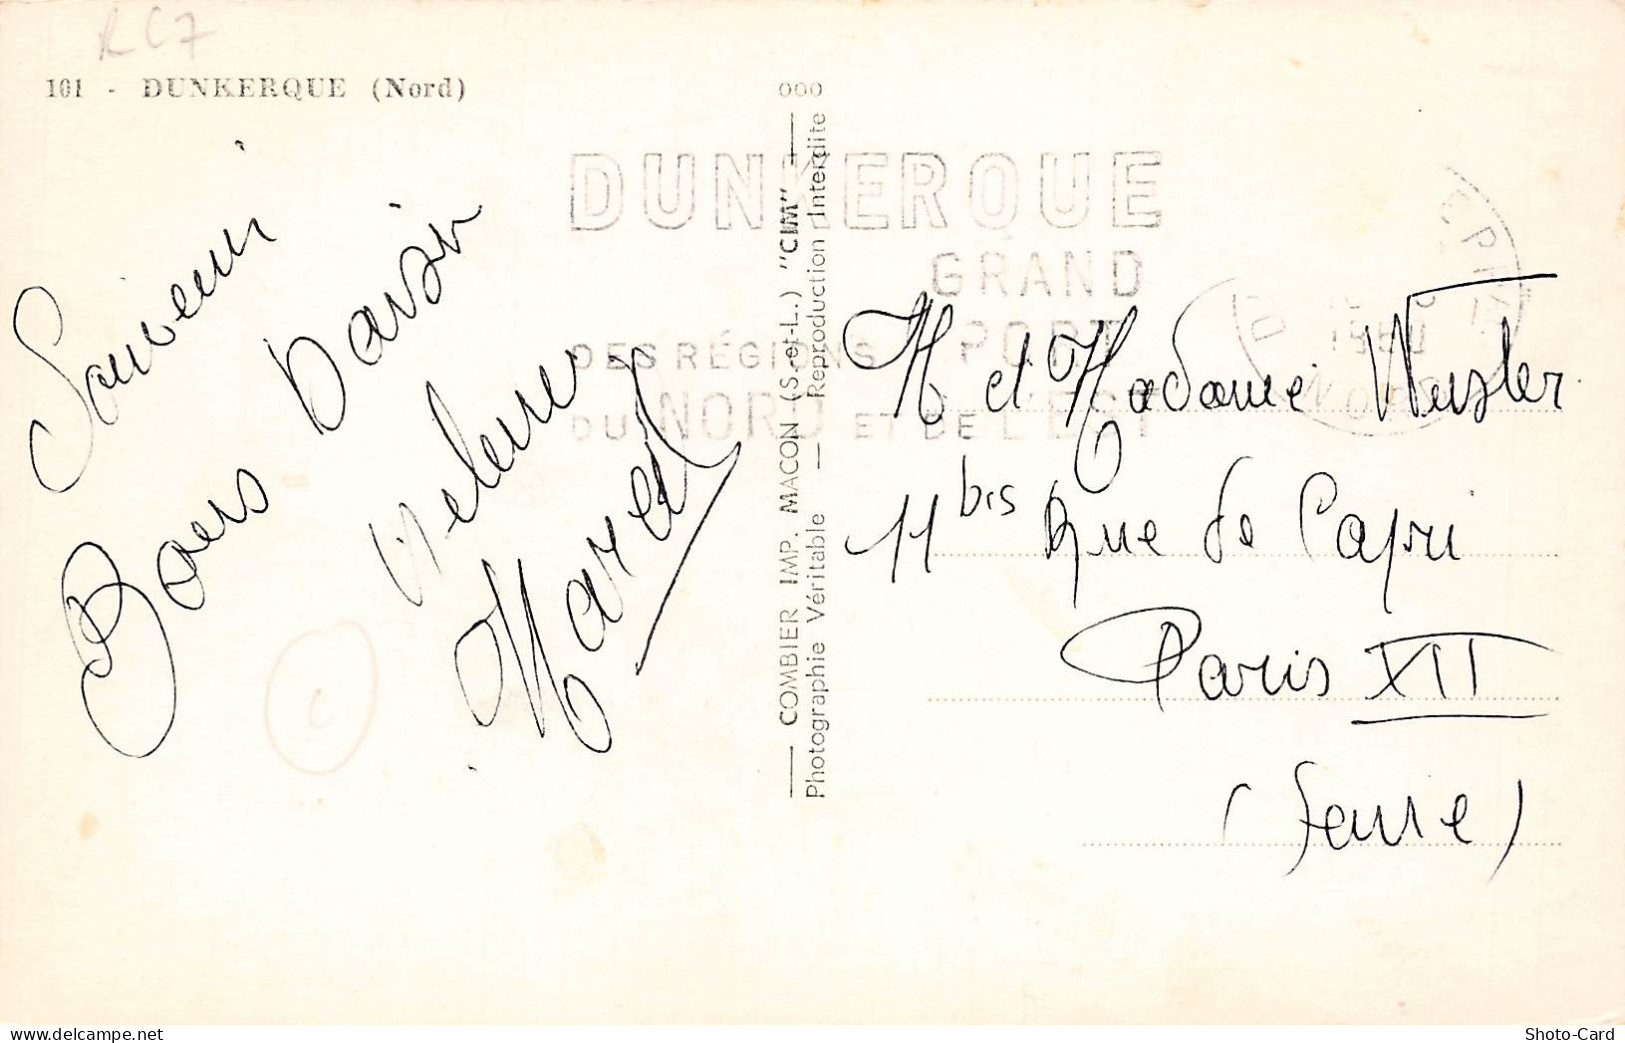 RC7
101 - DUNKERQUE (Nord)
Souvenir
Bons Baisers
Marcel
COMBIER IMP. MACON (S.-et-L.) "CIM"
Photographie Véritable — Reproduction Interdite
DUNKERQUE
GRAND
PORT
DES RÉGIONS
DU NORD ET DE L'EST
NORD
M et Madame
11 bis Rue de Capri
Paris XII
(Seine)
C
Shoto-Card